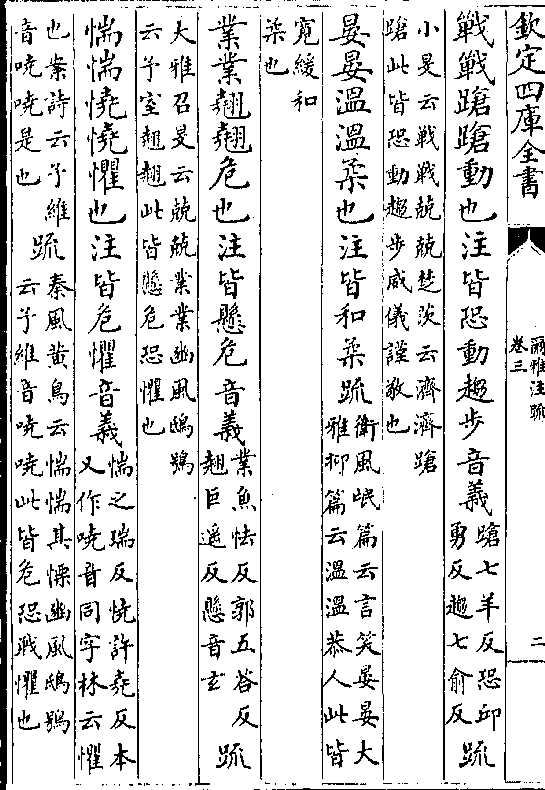 欽定四庫全書
爾雅注疏
卷三
二
戰戰蹌蹌動也注皆恐動趨步音義
蹌七羊反恐邱
勇反趨七俞反
疏
小旻云戰戰兢兢楚茨云濟濟蹌
蹌此皆恐動趨步威儀謹敬也
晏晏溫溫柔也注皆和柔疏
衛風氓篇云言笑晏晏大
雅抑篇云溫溫恭人此皆
寛緩和
柔也
業業翹翹危也注皆懸危音義
業魚怯反郭五荅反
翹巨遥反懸音玄
疏
大雅召旻云兢兢業業豳風鴟鴞
云予室翹翹此皆懸危恐懼也
惴惴憢憢懼也注皆危懼音義
惴之瑞反憢許堯反本
又作嘵音同字林云懼
也案詩云予維
音嘵嘵是也
疏
秦風黃鳥云惴惴其慄豳風鴟鴞
云予維音嘵嘵此皆危恐戰懼也